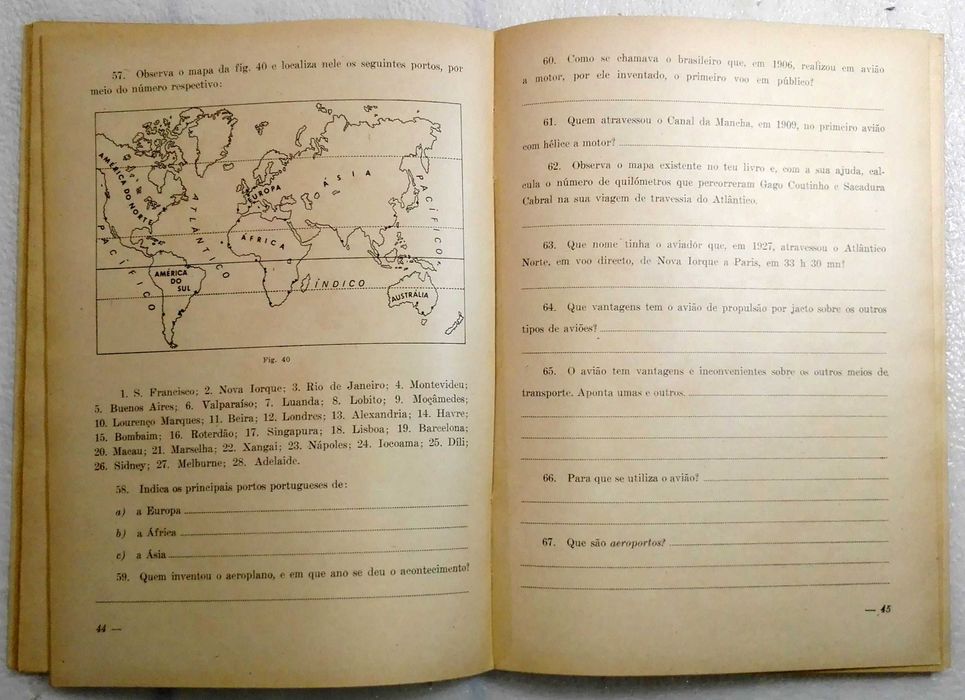 57. Observa o mapa da fig. 40 e localiza nele os seguintes portos, por
meio do número respectivo:
AMÉRICA DO NORTE
EUROPA
ÁSIA
ATLÂNTICO
PACÍFICO
PACÍFICO
ÁFRICA
AMÉRICA
DO
SUL
ÍNDICO
AUSTRÁLIA
Fig. 40
1. S. Francisco; 2. Nova Iorque; 3. Rio de Janeiro; 4. Montevideu;
5. Buenos Aires; 6. Valparaíso; 7. Luanda; 8. Lobito; 9. Moçâmedes;
10. Lourenço Marques; 11. Beira; 12. Londres; 13. Alexandria; 14. Havre;
15. Bombaim; 16. Roterdão; 17. Singapura; 18. Lisboa; 19. Barcelona;
20. Macau; 21. Marselha; 22. Xangai; 23. Nápoles; 24. Iocoama; 25. Díli;
26. Sidney; 27. Melburne; 28. Adelaide.
58. Indica os principais portos portugueses de:
a) a Europa
b) a África
c) a Ásia
59. Quem inventou o aeroplano, e em que ano se deu o acontecimento?
44 —
60. Como se chamava o brasileiro que, em 1906, realizou em avião
a motor, por ele inventado, o primeiro voo em público?
61. Quem atravessou o Canal da Mancha, em 1909, no primeiro avião
com hélice a motor?
62. Observa o mapa existente no teu livro e, com a sua ajuda, cal-
cula o número de quilómetros que percorreram Gago Coutinho e Sacadura
Cabral na sua viagem de travessia do Atlântico.
63. Que nome tinha o aviador que, em 1927, atravessou o Atlântico
Norte, em voo directo, de Nova Iorque a Paris, em 33 h 30 mn?
64. Que vantagens tem o avião de propulsão por jacto sobre os outros
tipos de aviões?
65. O avião tem vantagens e inconvenientes sobre os outros meios de
transporte. Aponta umas e outros.
66. Para que se utiliza o avião?
67. Que são aeroportos?
— 45